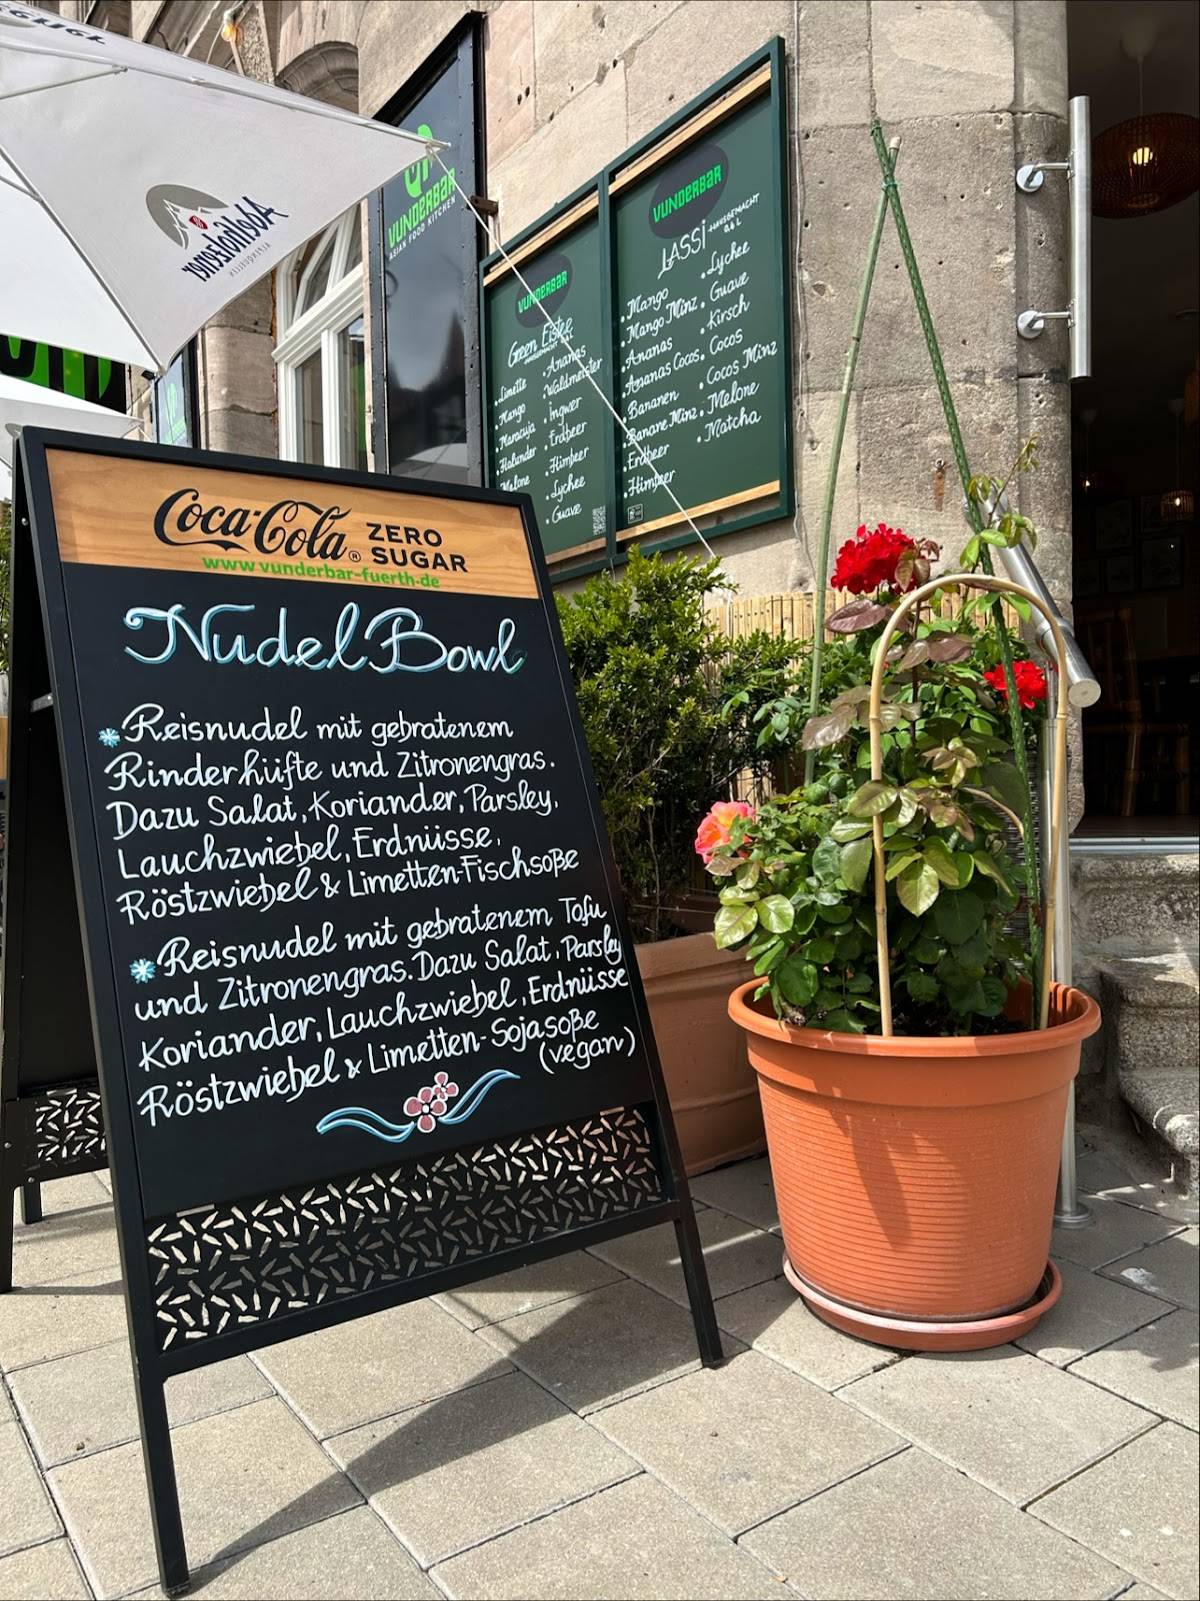 Adelholzener
ALPENQUELLEN
VUNDERBAR
ASIAN FOOD KITCHEN
VUNDERBAR
Green Eistee
HAUSGEMACHT
• Limette
• Mango
• Maracuja
• Holunder
• Melone
• Ananas
• Waldmeister
• Ingwer
• Erdbeer
• Himbeer
• Lychee
• Guave
VUNDERBAR
LASSI HAUSGEMACHT
0.4 L
• Mango
• Mango Minz
• Ananas
• Ananas Cocos
• Bananen
• Banane Minz
• Erdbeer
• Himbeer
• Lychee
• Guave
• Kirsch
• Cocos
• Cocos Minz
• Melone
• Matcha
Coca-Cola® ZERO
SUGAR
www.vunderbar-fuerth.de
Nudel Bowl
Reisnudel mit gebratenem
Rinderhüfte und Zitronengras.
Dazu Salat, Koriander, Parsley,
Lauchzwiebel, Erdnüsse,
Röstzwiebel & Limetten-Fischsoße
Reisnudel mit gebratenem Tofu
und Zitronengras. Dazu Salat, Parsley
Koriander, Lauchzwiebel, Erdnüsse
Röstzwiebel & Limetten-Sojasoße
(vegan)